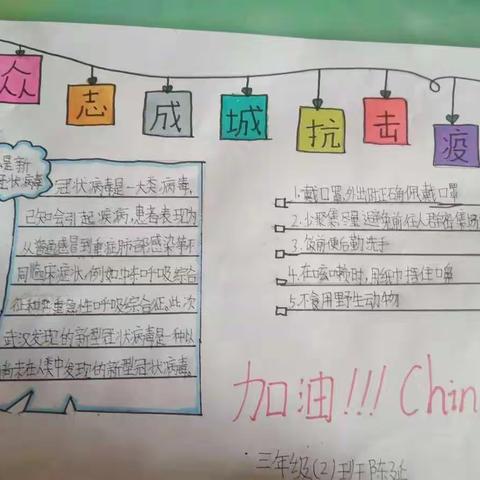 众志成城抗击疫
是新
冠状病毒
冠状病毒是一大类病毒,
已知会引起疾病,患者表现为
从普通感冒到重症肺部感染等不
同临床症状,例如中东呼吸综合
征和严重急性呼吸综合征。此次
武汉发现的新型冠状病毒是一种从
尚未在人类中发现的新型冠状病毒。
1.戴口罩,外出时正确佩戴口罩
2.少聚集,尽量避免前往人群密集场
3.饭前便后勤洗手
4.在咳嗽时,用纸巾捂住口鼻
5.不食用野生动物
加油!!! Chin
三年级(2)班 陈延